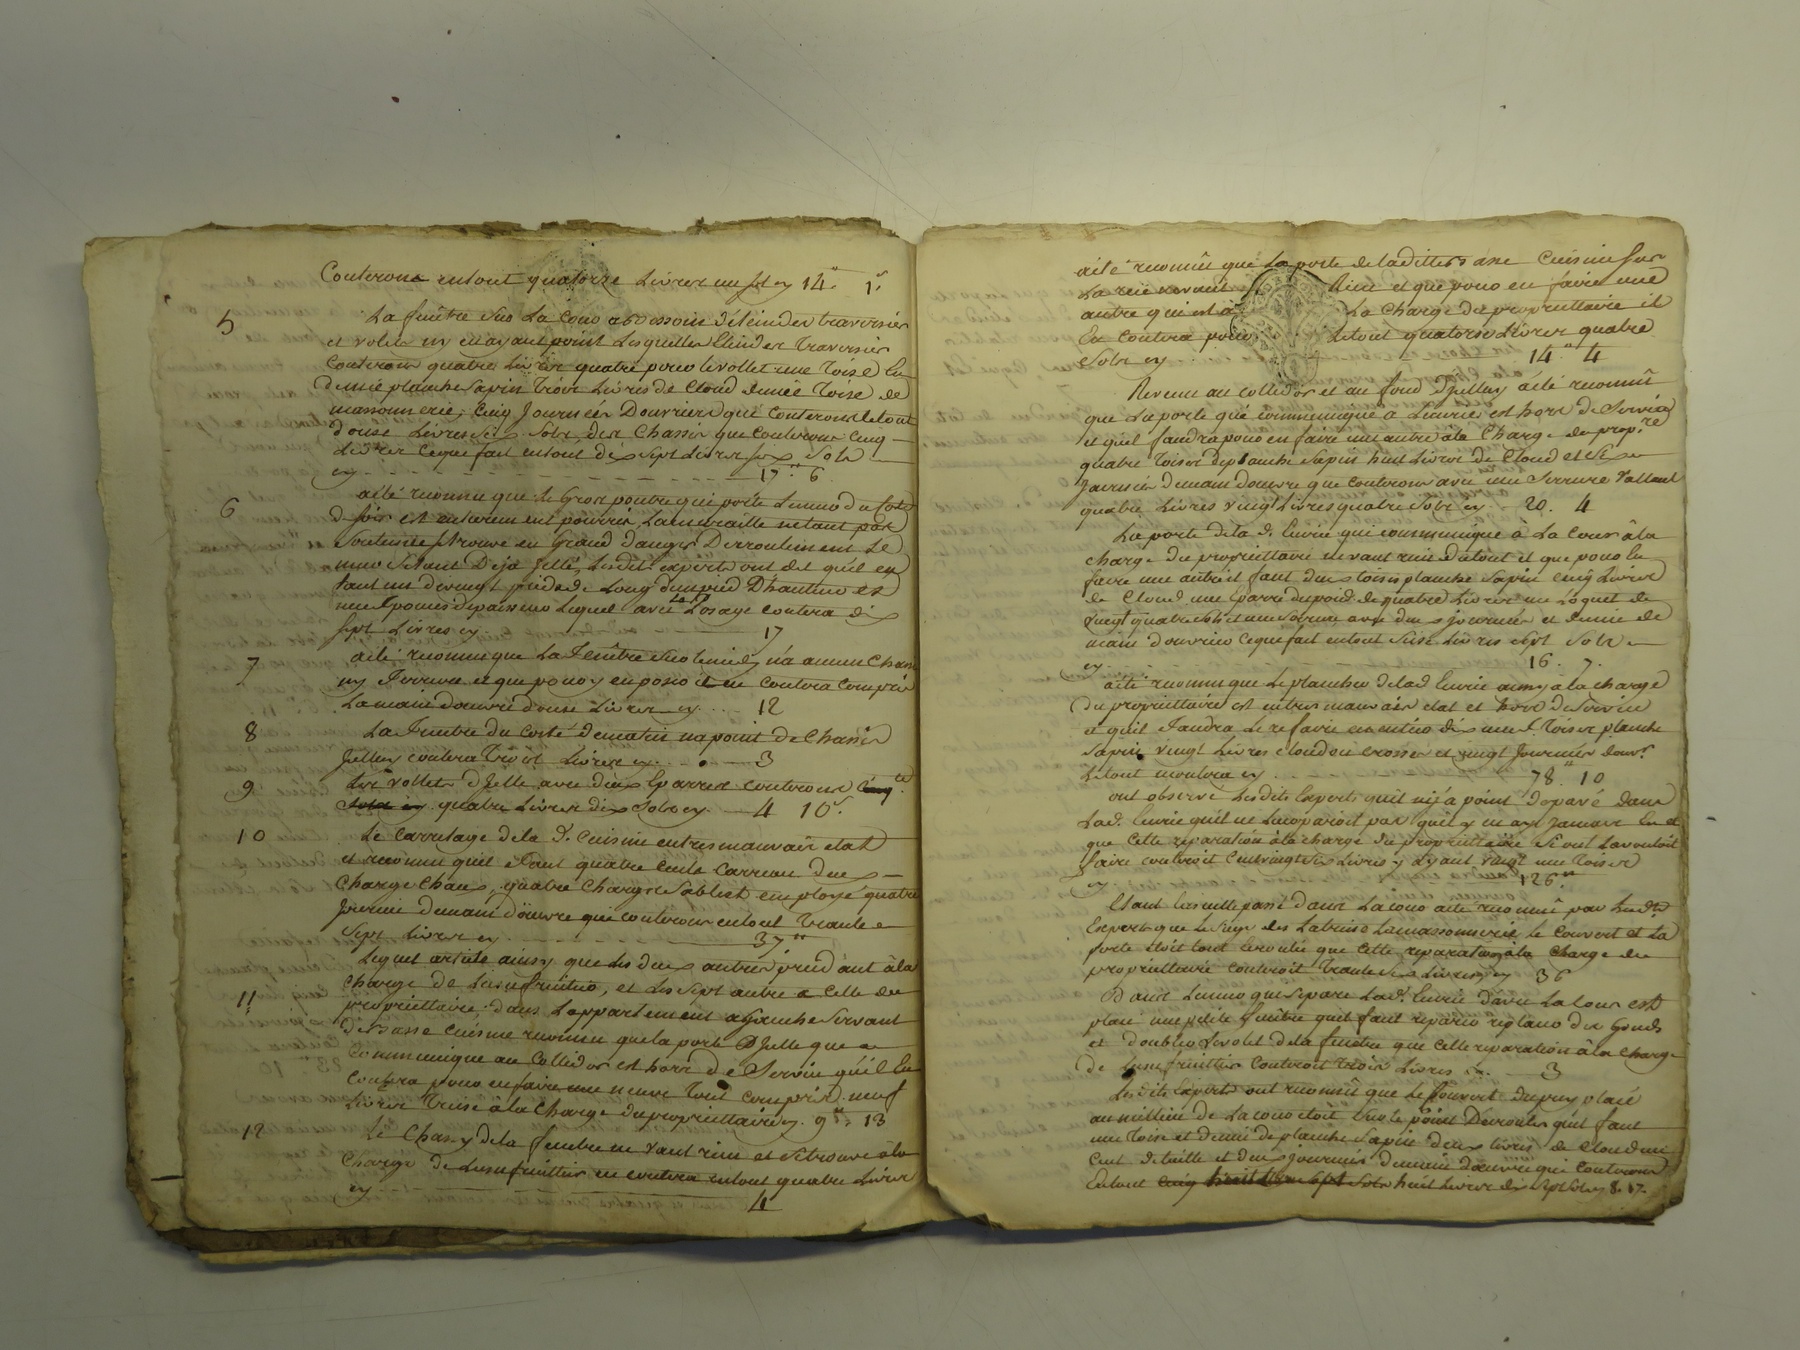 Couteront entout quatorze Livres un sol cy 14" 1s
5 La fenêtre sur La Cour a besoin d'éteinder traversier
et volet ny en ayant point Lesquelles Eteinder Traversier
Couteront quatre Livres quatre pour levollet une Toise Eu
demie planche Sapin trois Livres de Cloud demie Toise de
massonnerie, Cinq Journées Douvriers qui Couteront letout
douse Livres Six Sols, des Chassis qui Couteront Cinq
Livres Cequi fait entout dix Sept Livres six Sols
cy 17" 6
6 aété reconnu que Le Gros poutre qui porte Lemur du Coté
de soir est entierement pourrie, La muraille netant pas
Soutenue Strouve en Grand danger Decroulement Le
mur Setant Déja jetté, Lesdits experts ont dit quil en
faut un devingt pieds de Long dunpied Dhauteur et
neuf pouces depaisseur Lequel avec La Posage Coutera dix
sept Livres cy 17
7 aété reconnu que La Fenêtre Sur lemidy n'a aucun Chassis
ny Ferrure et que pour y en poser il en Coutera Compris
La main douvre douse Livres cy 12
8 La Fenetre du Costé dematin na point de Chassis
Jcelluy coutera Trois Livres cy 3
9 Les vollets d'Jcelle avec deux Eparres couteront
quatre Livres dix Sols cy 4 10s
10 Le carrelage dela d. Cuisine entres mauvais etat
et reconnu quil Faut quatre Cents Carreau deux
Charge Chaux, quatre Charges Sable et employé quatre
Journée demain d'oeuvre qui couteront entout Trante
Sept Livres cy 37"
Lequel article ainsy que Les deux autres prend'ant àla
Charge de Lusufruitier, et Les Sept autre a Celle du
11 propriettaire, dans L'appartement a Gauche Servant
de Basse Cuisine reconnu quela porte D'Jcelle que
Communique au Collidor est hors de Service quil En
Coutera pour enfaire une neuve Tout Compris neuf
Livres Treise àla Charge dupropriettaire cy 9" 13
12 Le Chassy dela fenetre ne vaut rien et Setrouve àla
Charge de Lusufruittier en Coutera entout quatre Livres
cy 4
aété reconnû que La porte de laditte Basse Cuisine sur
La Rue nevaut Rien et que pour en faire une
autre qui est à La Charge du propriettaire il
En Coutera pour Letout quatorse Livres quatre
Sols cy 14" 4
Revenu au collidor et au fond d'Jcelluy àété reconnû
que La porte qui communique à Lecurie est hors de Service
et quil faudra pour en faire une autre àla Charge du prop.re
quatre Toises de planche Sapin huit Livres de Cloud et Six
Journées demain douvre que Couteront avec une Serrure Vallant
quatre Livres vingt Livres quatre Sols cy 20. 4
La porte dela d. Ecurie qui communique à La Cour àla
charge du propriettaire ne vaut rien dutout et que pour En
faire une autre il faut deux toises planche Sapin Cinq Livres
de Cloud une Eparre du poid de quatre Livres un Loquet de
Vingt quatre Sols et une Serrure avec deux journées et demie de
main douvrier Cequi fait entout Seise Livres Sept Sols
cy 16. 7.
aété reconnu que Le plancher delad. Ecurie aussy à la charge
du propriettaire est entres mauvais etat et hors de Service
et quil Faudra Le refaire enentier dix neuf Toises planche
Sapin vingt Livres cloud ou crosses et vingt Journées douvr.
Letout montera cy 78" 10
ont observé Lesdits Experts quil ny a point de pavé dans
Lad. Ecurie quil ne Leur paroit pas quil y en ayt Jamais Eu et
que Cette reparation àla charge du propriettaire Si on Lavouloit
faire couteroit Centvingt Six Livres y ayant Vingt une toises
cy 126"
Etant Ensuitte passé dans La Cour aété reconnû par Lesdts
Experts que Le Siege des Latrines Lamassonnerie le Couvert et La
porte étoit tout Ecroulé que Cette reparation àla Charge du
propriettaire couteroit Trante Six Livres cy 36
Dans Lemur qui Separe Lad. Ecurie d'avec La Cour est
placé une petite fenêtre quil faut reparer replacer des Gonds
et doubler Levolet dela fenetre que Cette réparation àla Charge
de Lusufruittier Couteroit trois Livres cy 3
Lesdits Experts ont reconnû que Le Couvert du puy placé
au millieu de La Cour étoit Sur le point Decrouler quil faut
une Toise et demi de planche Sapin deux livres de Cloud un
Cent de tuille et deux journées demain d'oeuvre qui Couteront
Entout huit Livres dix Sept Sols cy 8. 17.